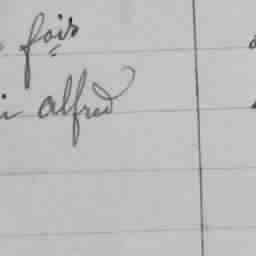 fois
alfred